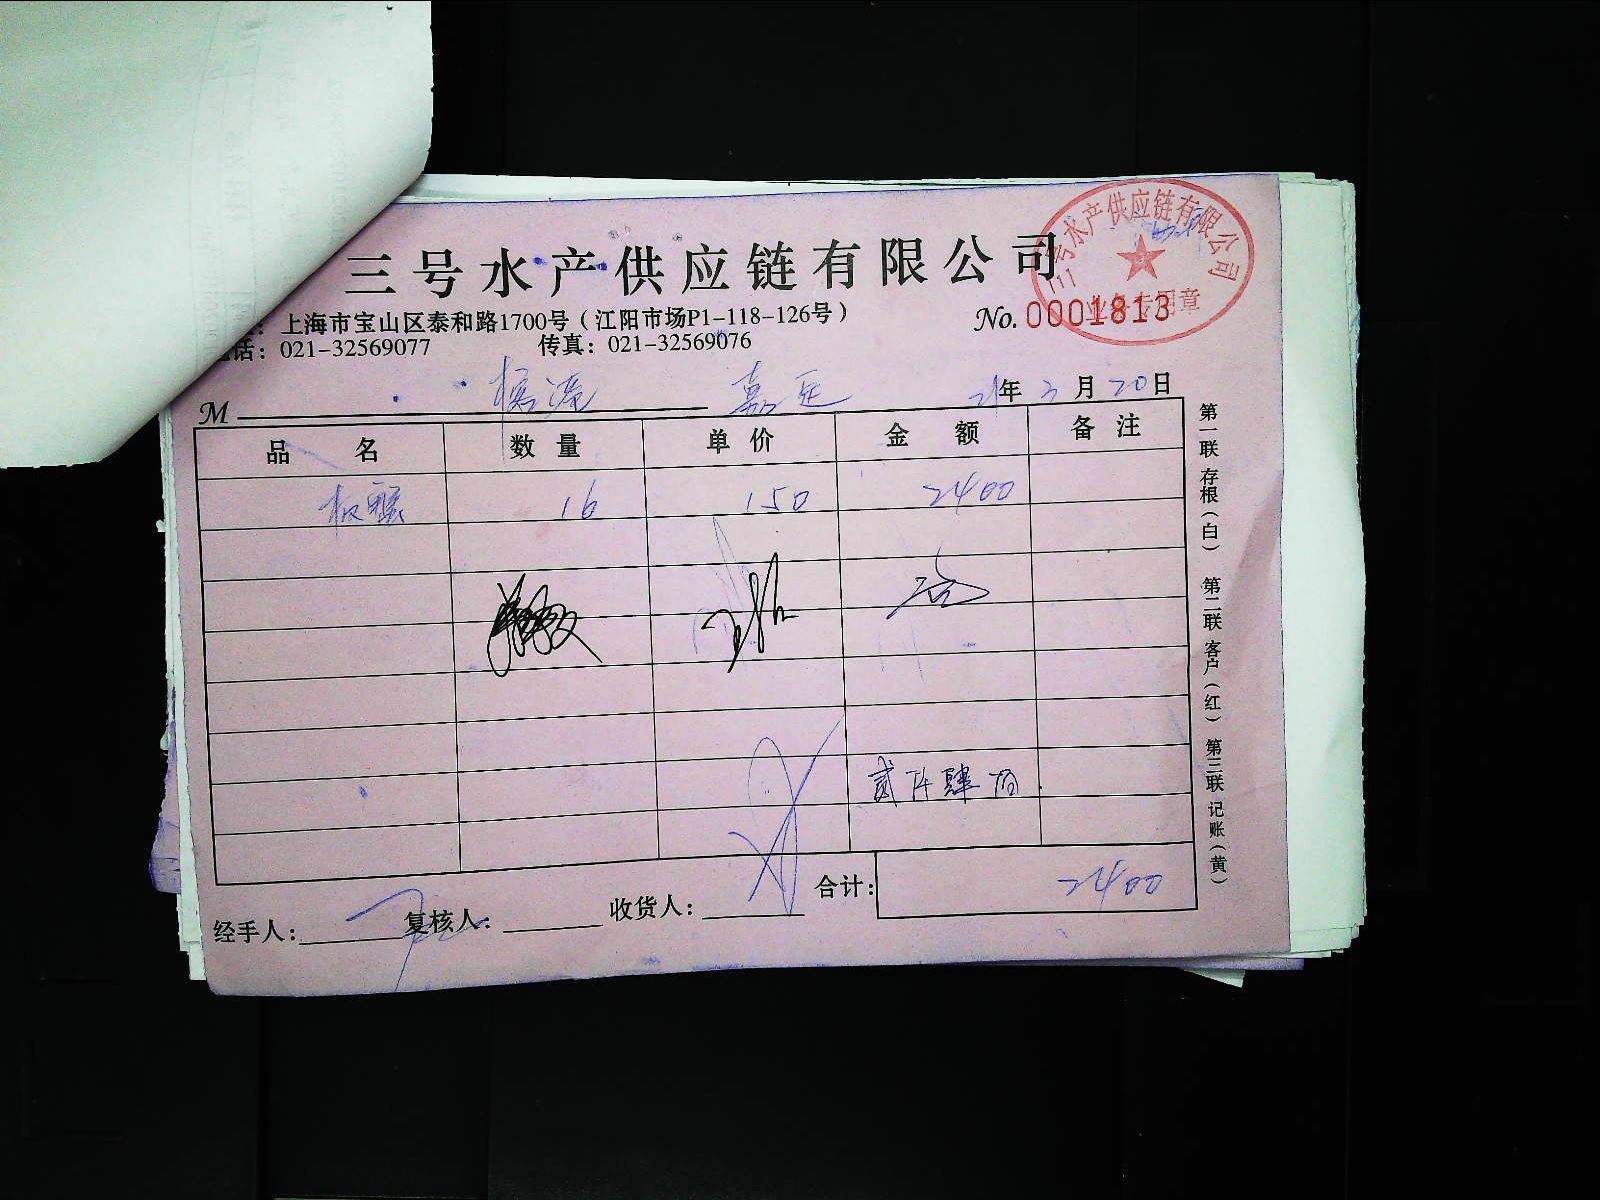 三号水产供应链有限公司
三号水产供应链有限公司
业务专用章
：上海市宝山区泰和路1700号（江阳市场P1-118-126号）
No. 0001813
话：021-32569077 传真：021-32569076
M 嘉 21年3月20日
品名 数量 单价 金额 备注
板 16 150 2400
贰仟肆佰
合计： 2400
经手人： 复核人： 收货人：
第一联 存根（白） 第二联 客户（红） 第三联 记账（黄）